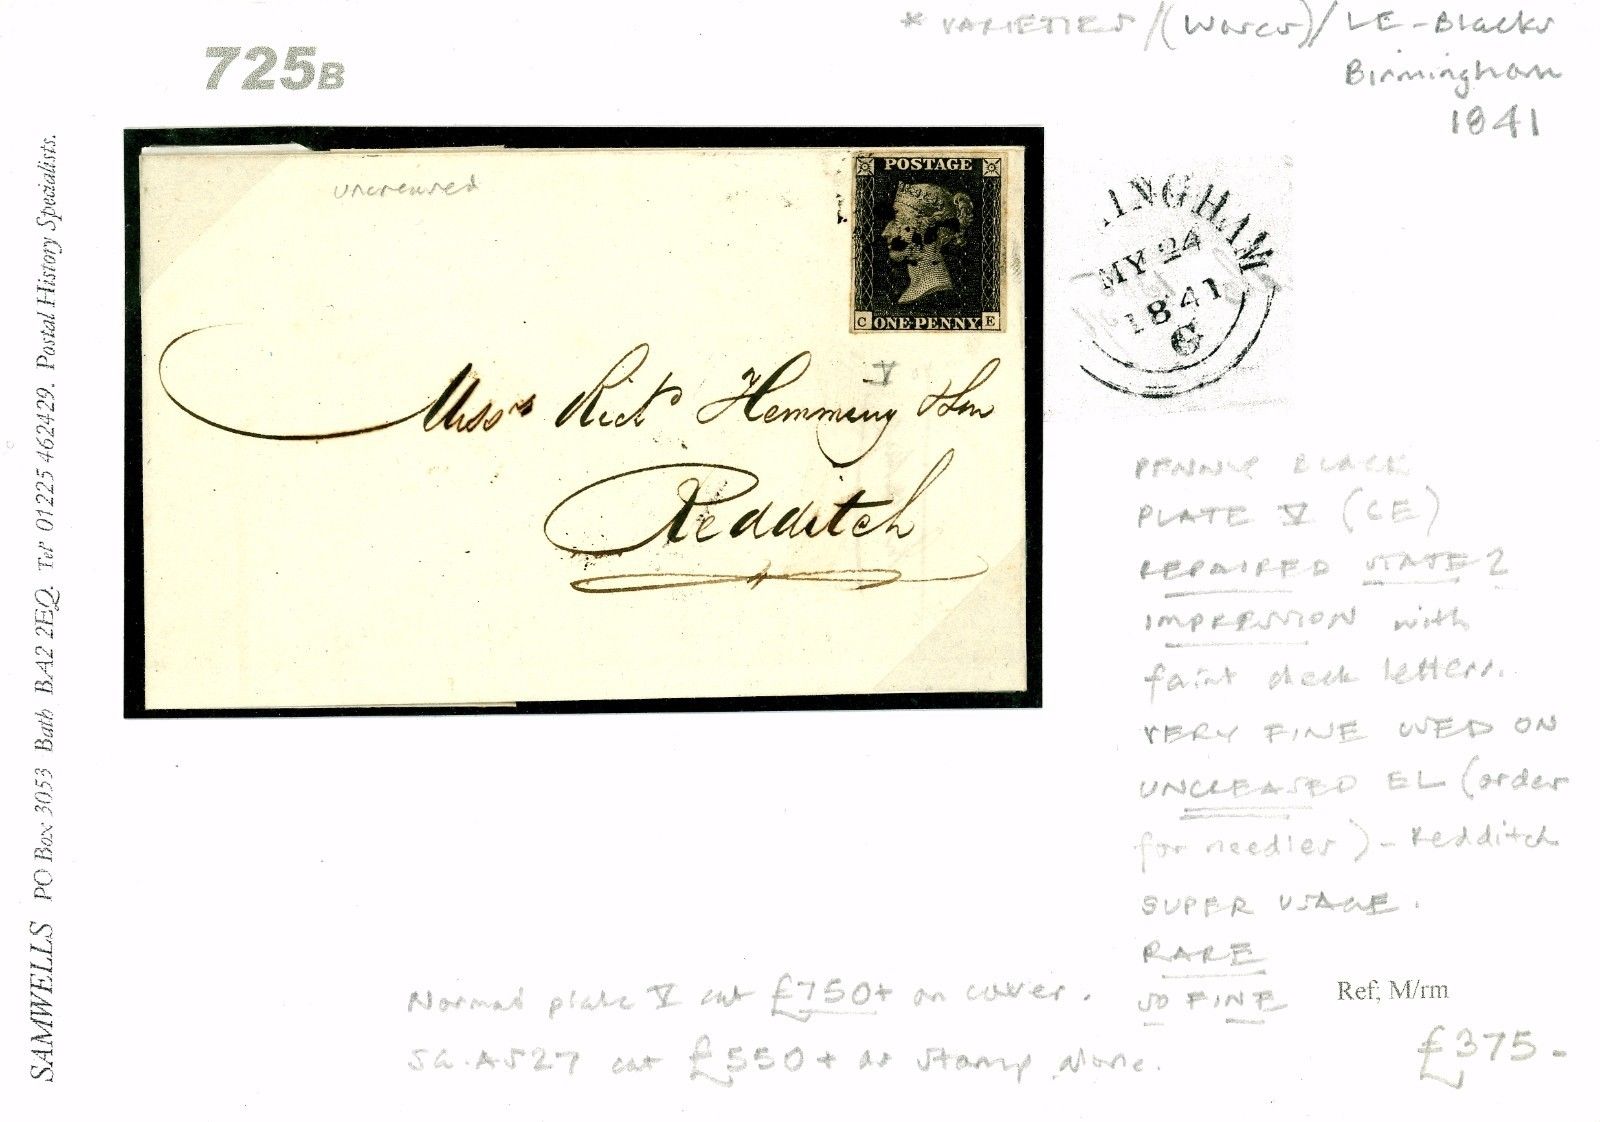 * VARIETIES / (Worcs) / LE - Blacks
Birmingham
1841
725B
SAMWELLS PO Box 3053 Bath BA2 2EQ. Tel' 01225 462429. Postal History Specialists.
uncreased
POSTAGE
C ONE PENNY E
V
Messrs Richd Hemming & Son
Redditch
INGHAM
MY 24
1841
G
PENNY BLACK
PLATE V (CE)
REPAIRED STATE 2
IMPRESSION with
faint check letters.
VERY FINE USED ON
UNCREASED EL (order
for needles) - Redditch
SUPER USAGE.
RARE
SO FINE
Normal plate V cat £750+ on cover.
SG.AS27 cat £550+ as stamp alone.
Ref; M/rm
£375-